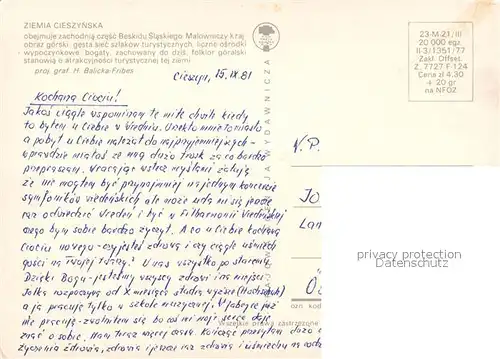 ZIEMIA CIESZYŃSKA
obejmuje zachodnią część Beskidu Śląskiego. Malowniczy kraj
obraz górski, gęsta sieć szlaków turystycznych, liczne ośrodki
wypoczynkowe, bogaty, zachowany do dziś, folklor góralski
stanowią o atrakcyjności turystycznej tej ziemi
proj. graf. H. Balicka-Fribes
23-M-21/III
20 000 egz.
II.3/1351/77
Zakł. Offset.
Z. 7727 F-124
Cena zł 4,30
+ 20 gr
na NFOZ
Cieszyn, 15.IX.81
Kochana Ciociu!
Jakoś ciągle wspominam te miłe chwile kiedy
to byłem u Ciebie w Wiedniu. Urzekło mnie to miasto
a pobyt u Ciebie należał do najprzyjemniejszych -
wprawdzie miałaś ze mną dużo trosk za co bardzo
przepraszam. Wracając wstecz myślami żałuję
że nie mogłem być przynajmniej na jednym koncercie
symfoników wiedeńskich ale może uda mi się jeszcze
raz odwiedzić Wiedeń i być w Filharmonii Wiedeńskiej
czego bym sobie bardzo życzył. A co u Ciebie kochana
Ciociu nowego - czy jesteś zdrowa i czy ciągle uśmiech
gości na Twojej twarzy? U nas wszystko po staremu.
Dzięki Bogu - jesteśmy wszyscy zdrowi i na miejscu.
Jolka rozpoczyna od X miesiąca studia wyższe (Hochschule)
a ja pracuję tylko w szkole muzycznej. W fabryce już
nie pracuję - zwolniłem się bo coś mi moje serce daje
znać o sobie. Mam teraz więcej czasu. Kończąc przesyłam dużo
życzenia zdrowia, zdrowia i jeszcze raz zdrowia i uśmiechu na
KRAJOWA AGENCJA WYDAWNICZA
N.P.
Jo
Lan
ozn kod
Wszelkie prawa zastrzeżone
privacy protection
Datenschutz